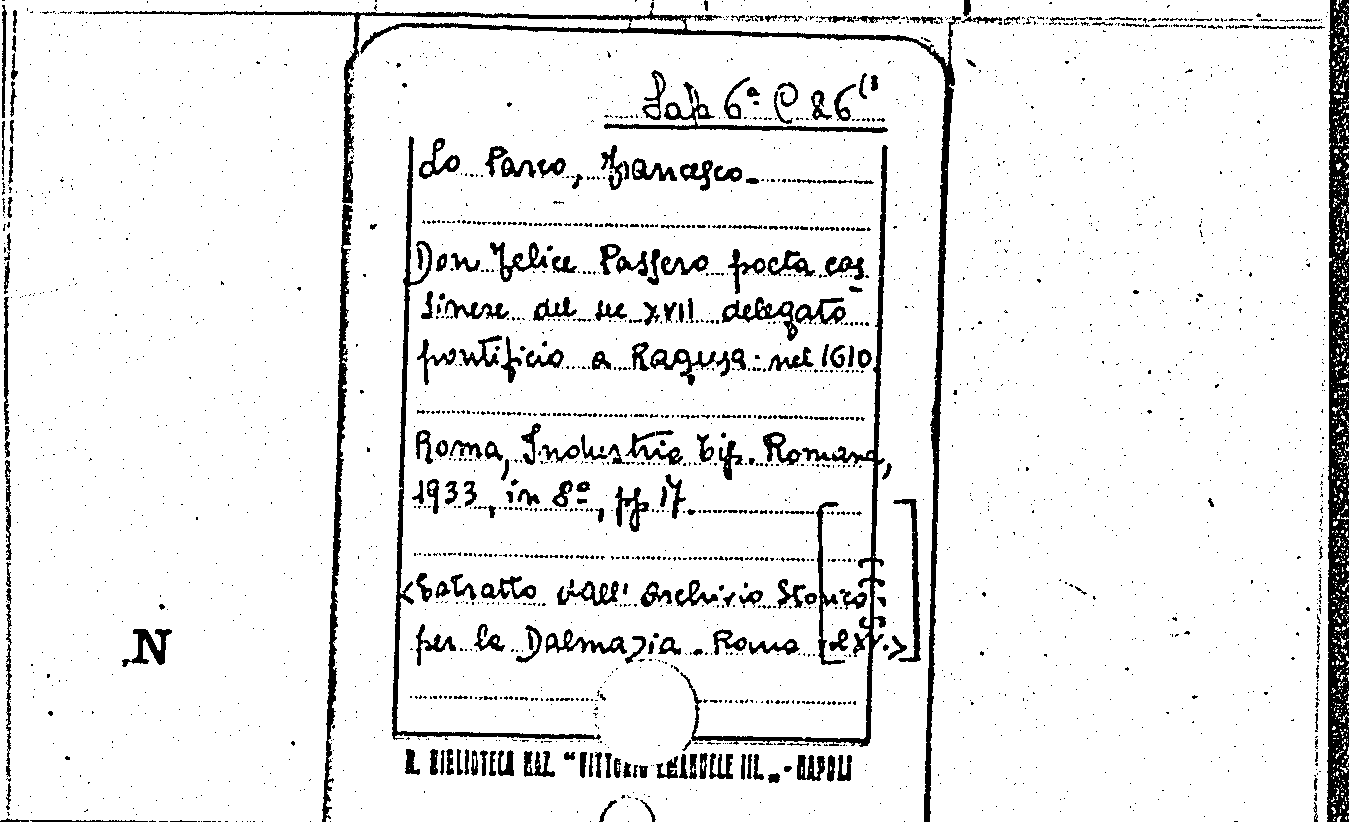 Sala 6ª C 26(3
Lo Parco, Francesco.
Don Felice Passero poeta cas
sinese del sec XVII delegato
pontificio a Ragusa nel 1610
Roma, Industria Tip. Romana,
1933, in 8º, pp 17.
<Estratto dall' Archivio Storico
per la Dalmazia. Roma vol XV.>
N
R. BIBLIOTECA NAZ. "VITTORIO EMANUELE III„ - NAPOLI